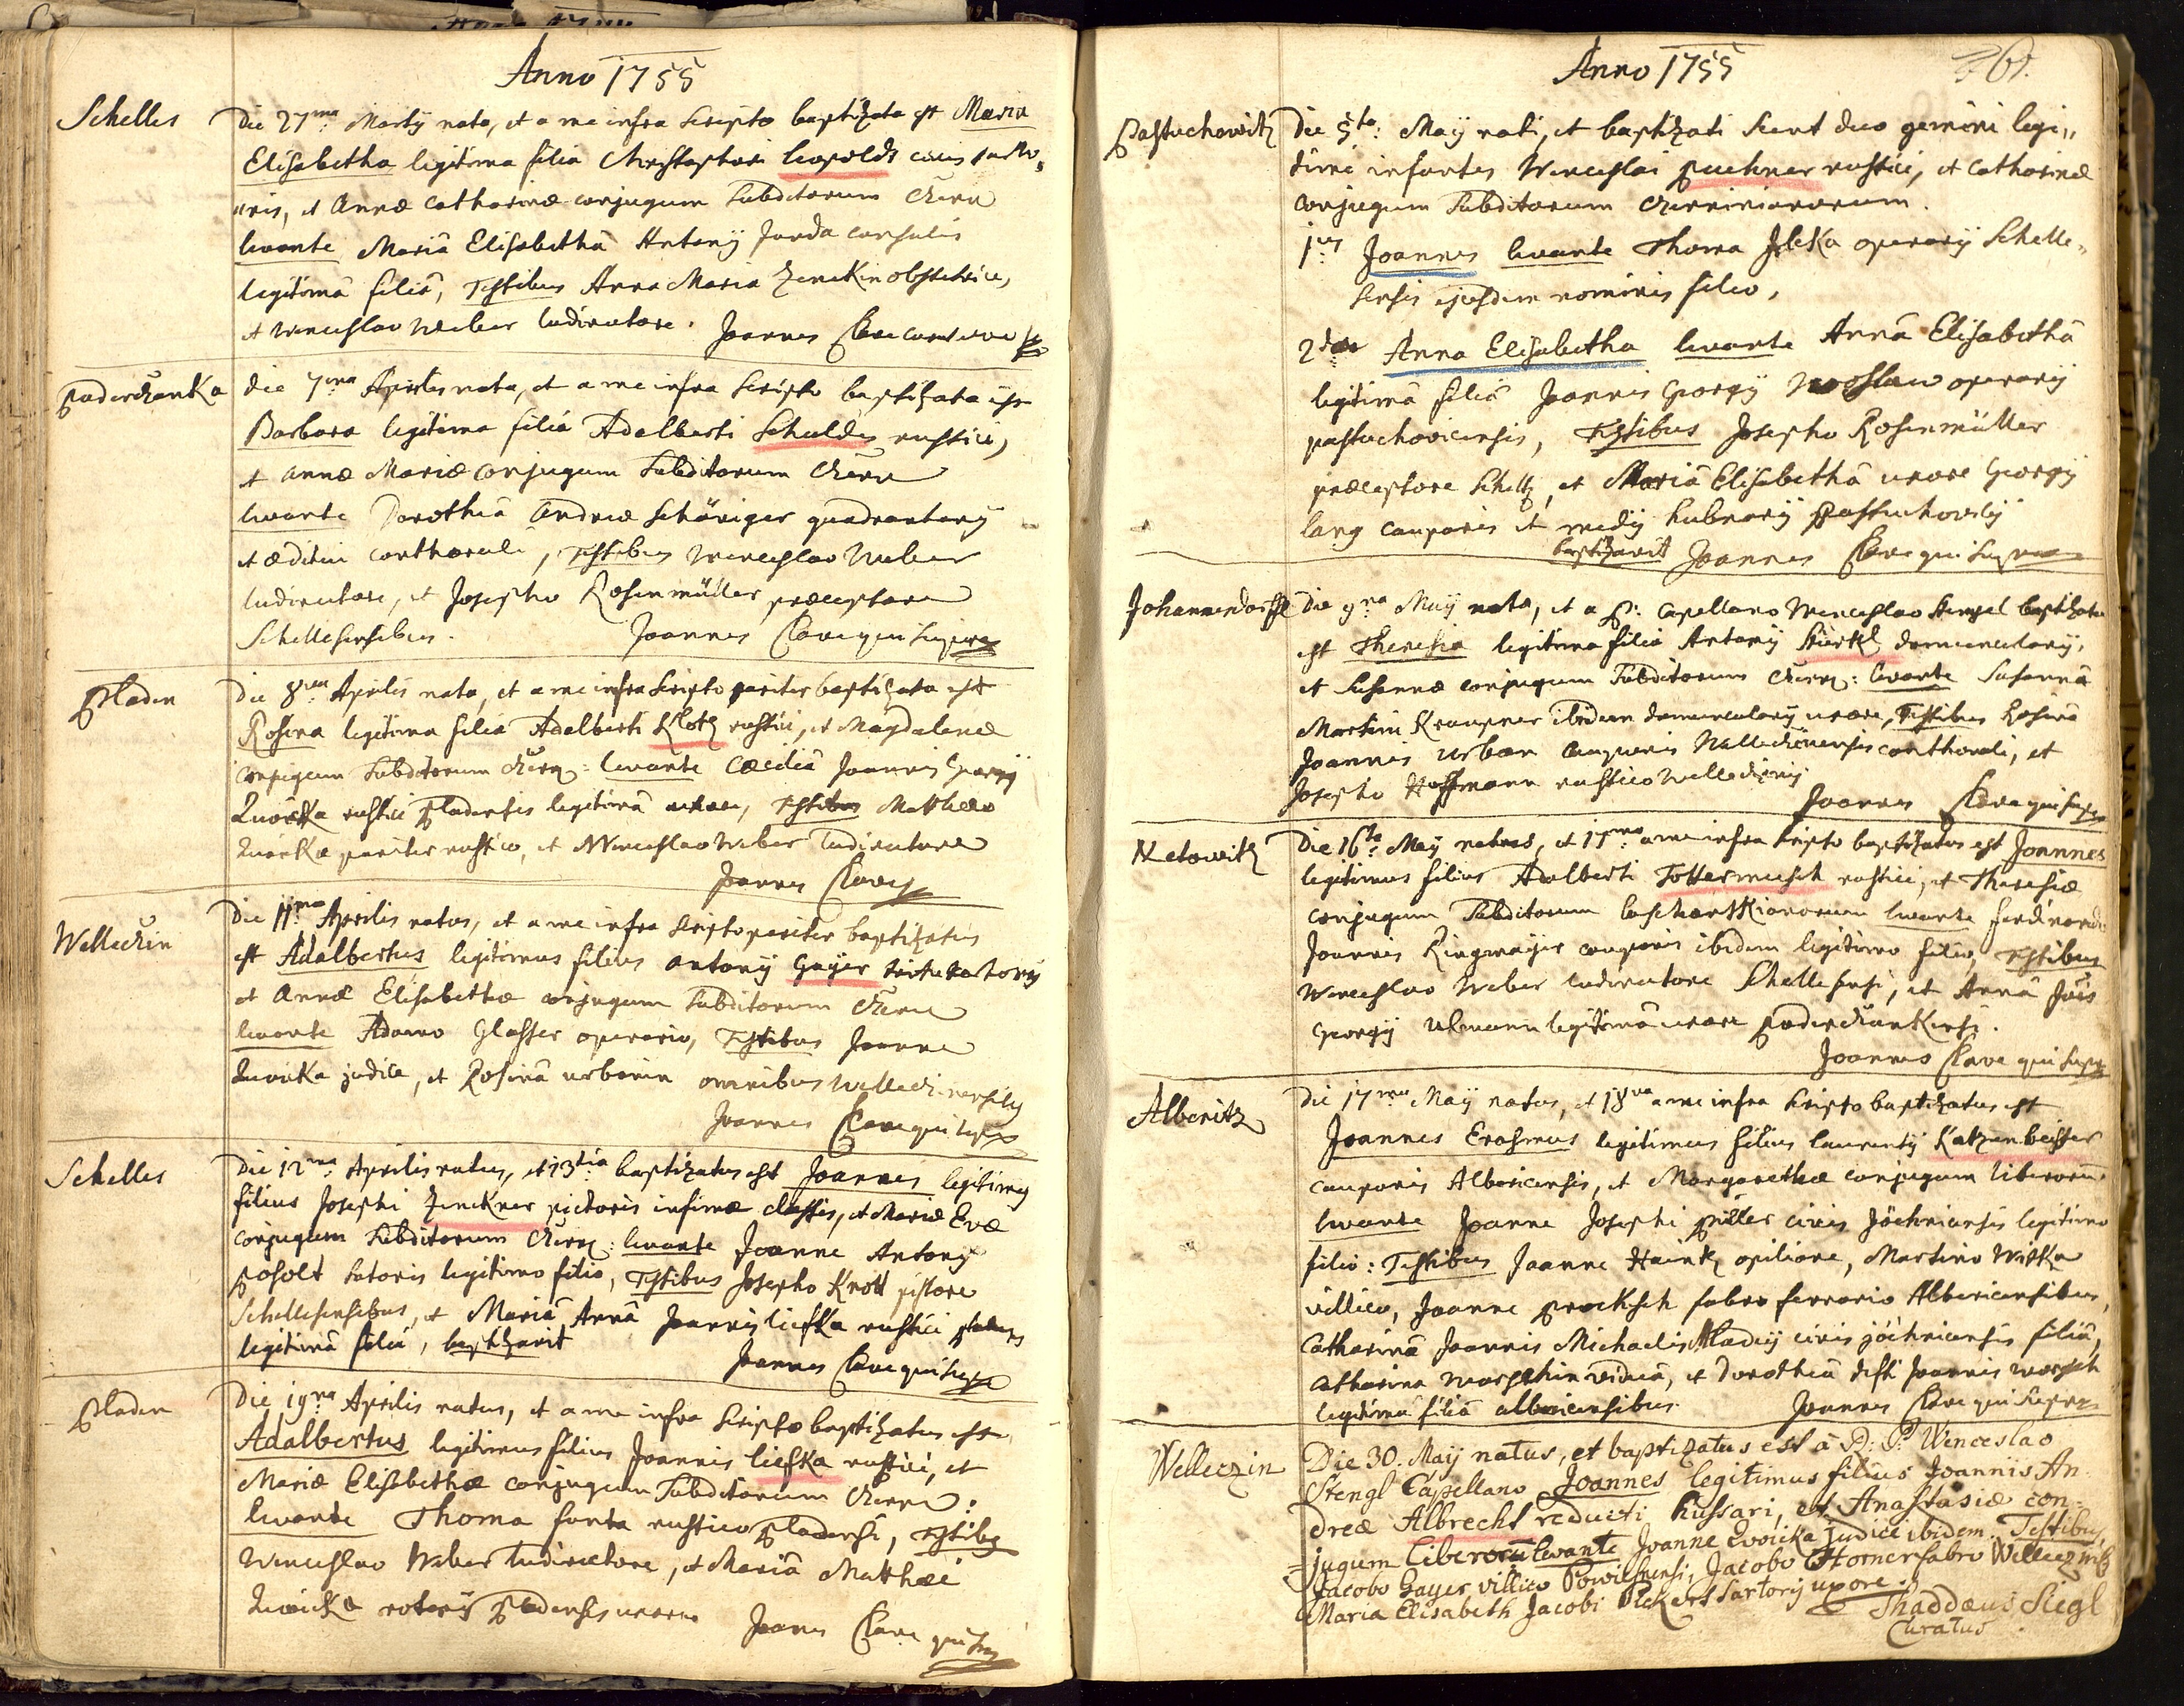 Anno 1755
Schelles
Die 27ma Martij nata, et a me infra scripto baptizata est Maria
Elisabetha legitima filia Christophori Leopoldt civis
et Annæ Catharinæ conjugum Subditorum
levante Mariâ Elisabethâ Antonij Janda consulis
legitimâ filiâ, Testibus Anna Maria Zenckin obstetrice,
et Wenceslao Weber ludirectore. Joannes Clave
Paderchanka
Die 7ma Aprilis nata, et a me infra scripto baptizata est
Barbara legitima filia Adalberti Schuldes rustici,
et Annæ Mariæ conjugum Subditorum
levante Dorotheâ Andreæ Schöniger quadrantarij
et æditui conthorali, Testibus Wenceslao Weber
ludirectore, et Josepho Rosenmüller præceptore
Schellesensibus. Joannes Clave qui supra
Pladen
Die 8va Aprilis nata, et a me infra scripto pariter baptizata est
Rosina legitima filia Adalberti Klotz rustici, et Magdalenæ
conjugum Subditorum levante Cæciliâ Joannis Georgij
rustici Pladensis legitimâ Testibus Matthæo
pariter rustico, et Wenceslao Weber ludirectore
Joannes Clave
Wellechin
Die 11ma Aprilis natus, et a me infra scripto pariter baptizatus
est Adalbertus legitimus filius Antonij Gayer
et Annæ Elisabethæ conjugum Subditorum
levante Adamo Glasser operario, Testibus Joanne
judice, et Rosinâ urbanin omnibus
Joannes Clave qui supra
Schelles
Die 12ma Aprilis natus, et 13tia baptizatus est Joannes legitimus
filius Josephi Zenckner pictoris infimæ classis, et Mariæ Evæ
conjugum Subditorum levante Joanne Antonij
Posolt Satoris legitimo filio, Testibus Josepho Knott pistore
Schellesensibus, et Mariâ Annâ Joannis Liefka rustici
legitimâ filiâ, baptizavit Joannes Clave qui supra
Pladen
Die 19na Aprilis natus, et a me infra scripto baptizatus est
Adalbertus legitimus filius Joannis Liefka rustici, et
Mariæ Elisabethæ conjugum Subditorum
levante Thoma rustico Pladensi, Testibus
Wenceslao Weber ludirectore, et Mariâ Matthæi
Pladensis uxore Joannes Clave qui supra
Anno 1755
Pastuchowitz
Die 5ta Maij nati, et baptizati sunt duo gemini legi„
timi infantes Wenceslai Puchner rustici, et Catharinæ
conjugum Subditorum
1us Joannes levante Thoma operarij Schelle„
sensis ejusdem nominis filio,
2da Anna Elisabetha levante Annâ Elisabethâ
legitimâ filiâ Joannis Georgij operarij
pastuchovicensis, Testibus Josepho Rosenmüller
præceptore et Mariâ Elisabethâ uxore Georgij
Lang cauponis et medij hubnarij
baptizavit Joannes Clave qui supra
Johannendorffl
Die 9na Maij nata, et a P: Capellano Wenceslao Stengel baptizata
est Theresia legitima filia Antonij domuncularij,
et Susannæ conjugum Subditorum levante Susannâ
Martini Kraupner ibidem domuncularij uxore, Testibus Rosinâ
Joannis Urban conthorali, et
Josepho Hoffmann rustico
Joannes Clave qui supra
Netowitz
Die 16ta Maij natus, et 17ma a me infra scripto baptizatus est Joannes
legitimus filius Adalberti Tottermusch rustici, et Theresiæ
conjugum Subditorum levante Ferdinando
Joannis Ringmaijer cauponis ibidem legitimo filio, Testibus
Wenceslao Weber ludirectore Schellesensi, et Annâ
Georgij Ulmann legitimâ uxore
Joannes Clave qui supra
Alberitz
Die 17ma Maij natus, et 18va a me infra scripto baptizatus est
Joannes Erasmus legitimus filius Laurentij Katzenbeisser
cauponis Albericensis, et Margarethæ conjugum liberorum
levante Joanne Josephi Püller civis legitimo
filio: Testibus Joanne Haintz opilione, Martino Witka
villico, Joanne Procksch fabro ferrario Albericensibus,
Catharinâ Joannis Michaelis civis filiâ,
Catharina viduâ, et Dorotheâ Joannis
legitimâ filiâ albericensibus. Joannes Clave qui supra
Welleczin
Die 30. Maij natus, et baptizatus est â R: P: Wenceslao
Stengl Capellano Joannes legitimus filius Joannis An
dreæ Albrecht reducti Hussari, et Anastasiæ con-
jugum liberorū levante Joanne judice ibidem. Testibus
Jacobo Gayer villico Jacobo Horner fabro
Maria Elisabeth Jacobi Pickert Sartorij uxore.
Thaddæus Siegl
Curatus